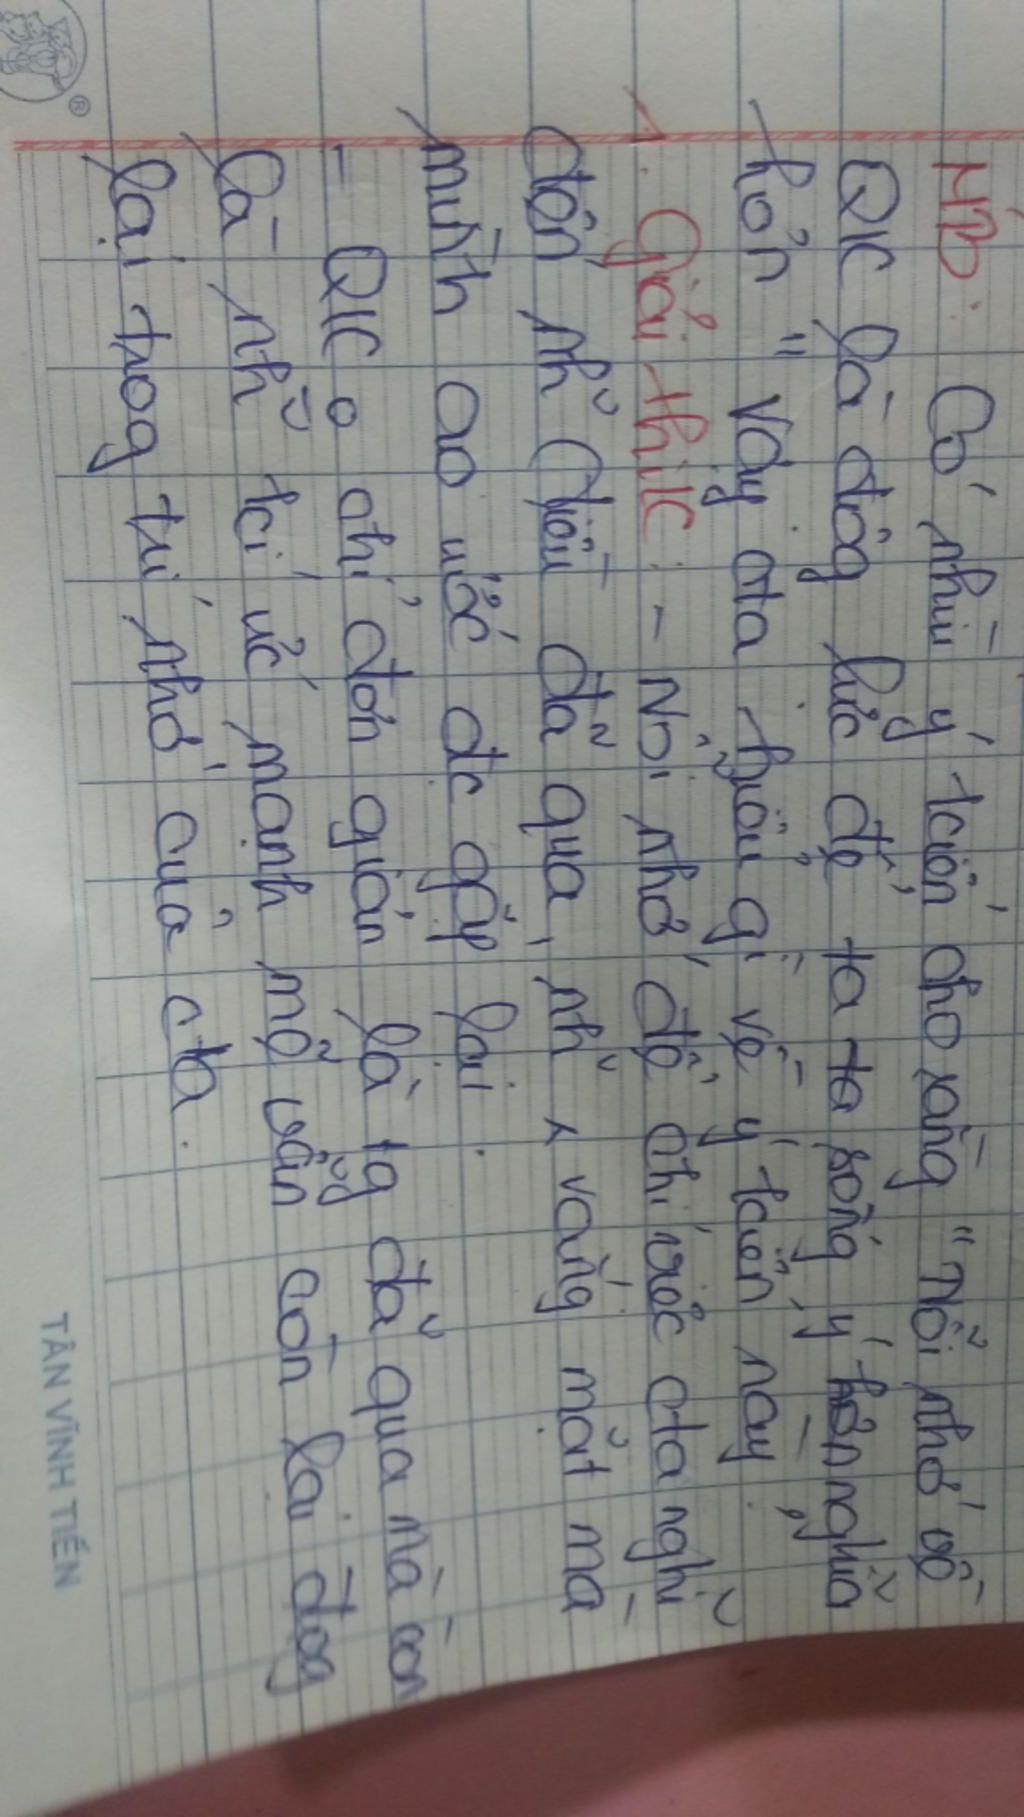 MB: Có nhìu ý kiến cho rằng "Nỗi nhớ về
QK là độg lực để ta ta sống ý hơn nghĩa
hơn" vậy cta hiểu gì về ý kiến này.
1. Giải thíK: - Nỗi nhớ để chỉ việc cta nghĩ
đến nh~ điều đã qua, nh~ x vắng mặt mà
mình ao ước đc gặp lại.
- QK o chỉ đơn giản là tg đã qua mà còn
là nh~ kí ức mạnh mẽ vẫn còn lai đọg
lại trog trí nhớ của cta.
TÂN VĨNH TIẾN
®